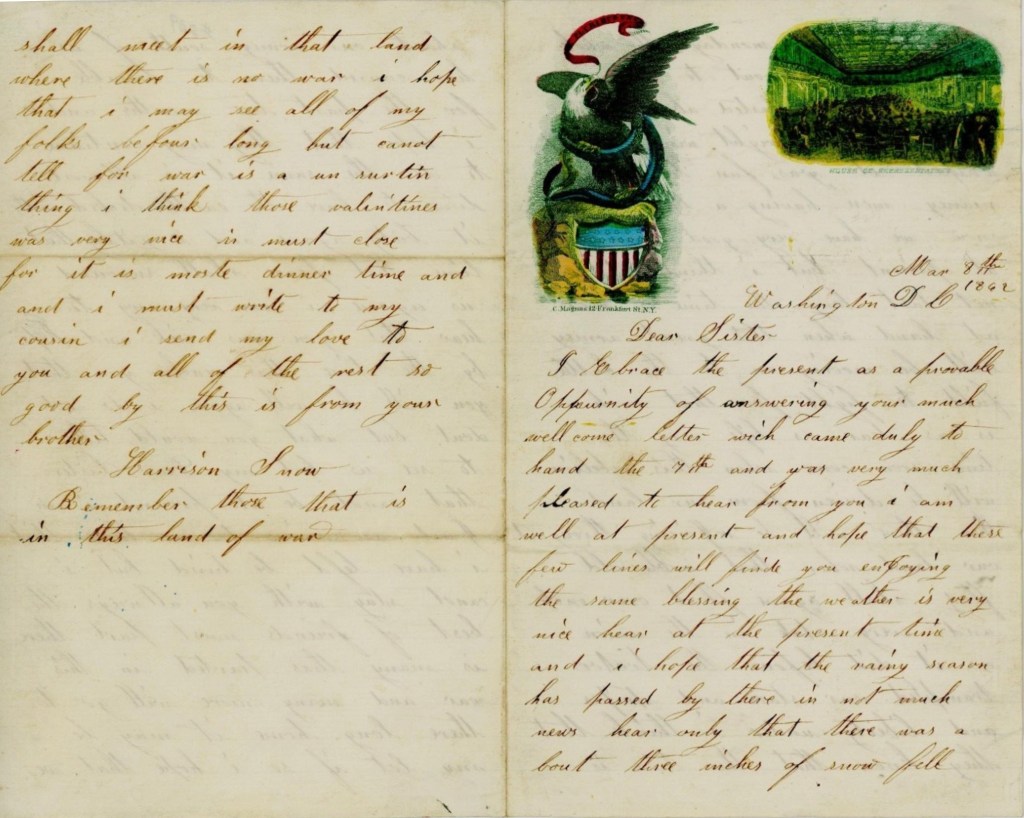 shall meet in that land
where there is no war i hope
that i may see all of my
folks befour long but canot
tell for war is a un surtin
thing i think those valintines
was very nice in must close
for it is moste dinner time and
and i must write to my
cousin i send my love to
you and all of the rest so
good by this is from your
brother
Harrison Snow
Remember those that is
in this land of war
HOUSE OF REPRESENTATIVES
C. Magnus 12 Frankfort St. N.Y.
Mar 8th
1862
Washington D C
Dear Sister
I Ebrace the present as a provable
Oppeurnity of answering your much
well come letter wich came duly to
hand the 7th and was very much
pleased to hear from you i am
well at present and hope that these
few lines will finde you enjoying
the same blessing the weather is very
nice hear at the present time
and i hope that the rainy season
has passed by there is not much
news hear only that there was a
bout three inches of snow fell